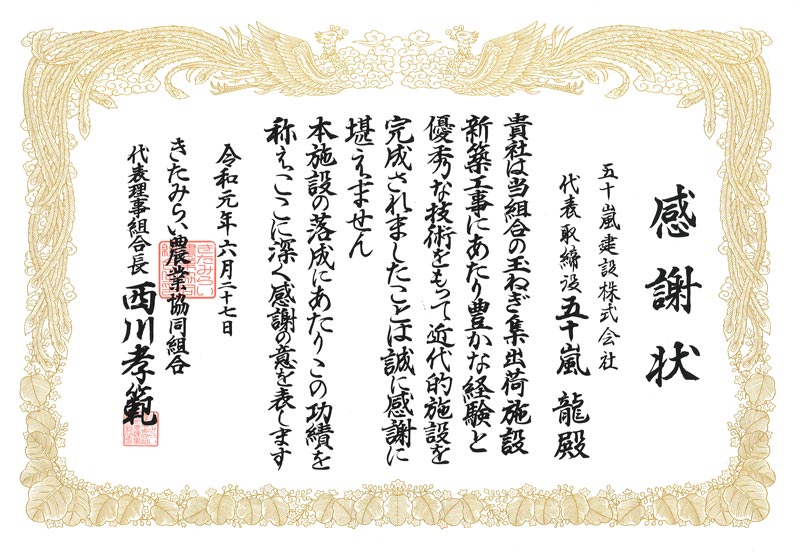 感謝状
五十嵐建設株式会社
代表取締役 五十嵐 龍殿
貴社は当組合の玉ねぎ集出荷施設
新築工事にあたり豊かな経験と
優秀な技術をもって近代的施設を
完成されましたことは誠に感謝に
堪えません
本施設の落成にあたりこの功績を
称えここに深く感謝の意を表します
令和元年六月二十七日
きたみらい農業協同組合
代表理事組合長 西川孝範